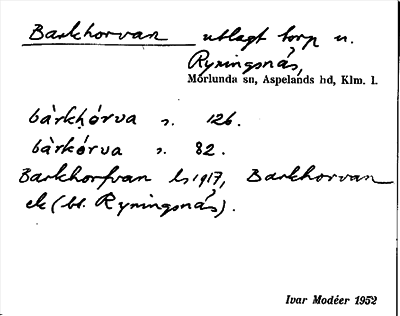 Barkhorvan utlagt torp u.
Ryningsnäs,
Mörlunda sn, Aspelands hd, Klm. l.
bàrkhórva s. 126.
bàrkórva s. 82.
Barkhorfvan ls 1917, Barkhorvan
ek (bl. Ryningsnäs).
Ivar Modéer 1952